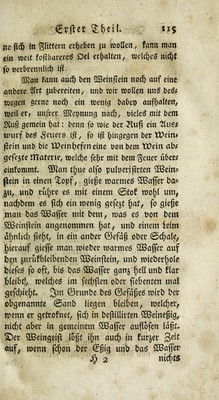 Erster Theil. 115
ne sich in Flittern erheben zu wollen, kann man
ein weit kostbareres Oel erhalten, welches nicht
so verbrennlich ist.
Man kann auch den Weinstein noch auf eine
andere Art zubereiten, und wir wollen uns des-
wegen gerne noch ein wenig dabey aufhalten,
weil er, unsrer Meynung nach, vieles mit dem
Ruß gemein hat: denn so wie der Ruß ein Aus-
wurf des Feuers ist, so ist hingegen der Wein-
stein und die Weinhefen eine von dem Wein ab-
gesezte Materie, welche sehr mit dem Feuer über-
einkommt. Man thue also pulverisirten Wein-
stein in einen Topf, gieße warmes Wasser da-
zu, und rühre es mit einem Stok wohl um,
nachdem es sich ein wenig gesezt hat, so gieße
man das Wasser mit dem, was es von dem
Weinstein angenommen hat, und einem Leim
ähnlich sieht, in ein ander Gefäß oder Schale,
hierauf giesse man wieder warmes Wasser auf
den zurükbleibenden Weinstein, und wiederhole
dieses so oft, bis das Wasser ganz hell und klar
bleibt, welches im sechsten oder siebenten mal
geschieht. Im Grunde des Gefäßes wird der
obgenannte Sand liegen bleiben, welcher,
wenn er getroknet, sich in destillirten Weineßig,
nicht aber in gemeinem Wasser auflösen läßt.
Der Weingeist lößt ihn auch in kurzer Zeit
auf, wenn schon der Eßig und das Wasser
H 2 nichts